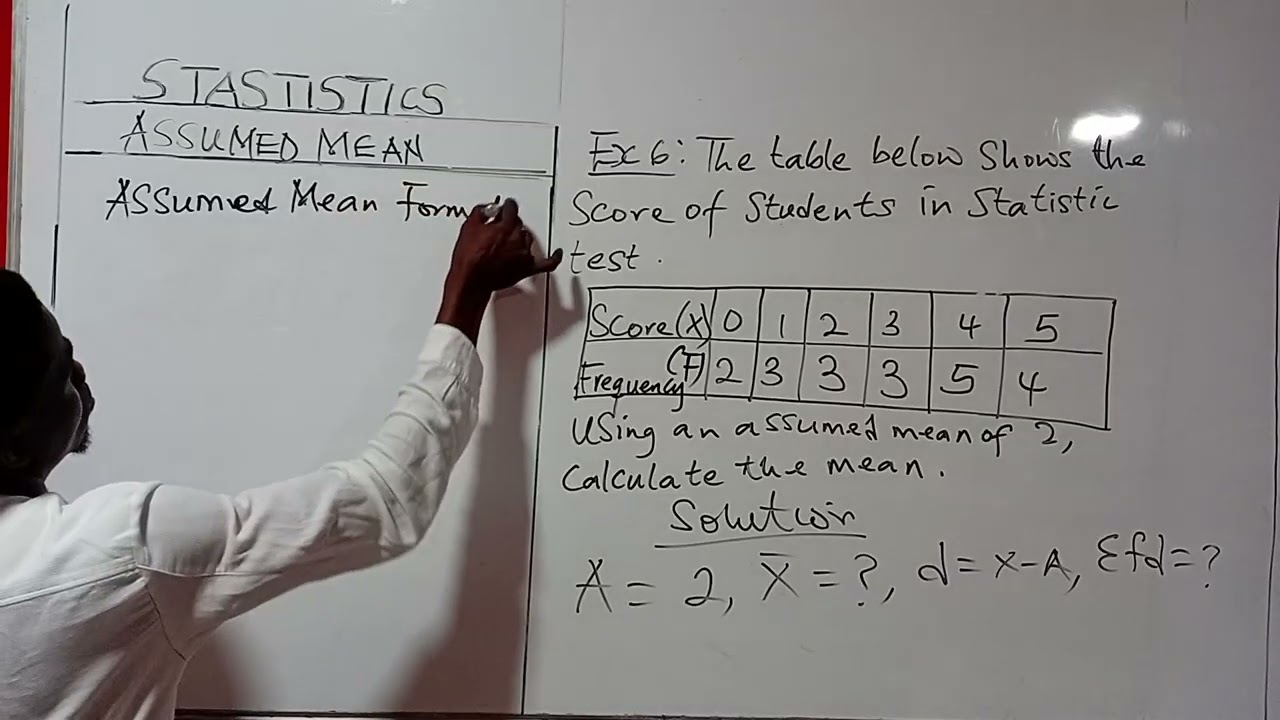 STASTISTICS
ASSUMED MEAN
Assumed Mean Form
Ex 6: The table below shows the
Score of Students in Statistic
test.
Score(x) 0 1 2 3 4 5
Frequency(F) 2 3 3 3 5 4
Using an assumed mean of 2,
Calculate the mean.
Solution
A = 2, x̄ = ?, d = x-A, Σfd = ?